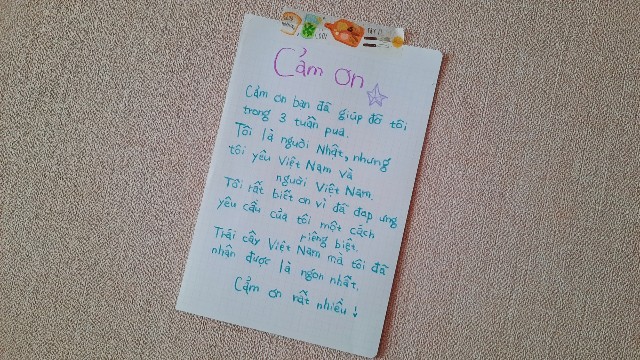 Cảm ơn
Cảm ơn bạn đã giúp đỡ tôi
trong 3 tuần qua.
Tôi là người Nhật, nhưng
tôi yêu Việt Nam và
người Việt Nam.
Tôi rất biết ơn vì đã đáp ứng
yêu cầu của tôi một cách
riêng biệt.
Trái cây Việt Nam mà tôi đã
nhận được là ngon nhất.
Cảm ơn rất nhiều!